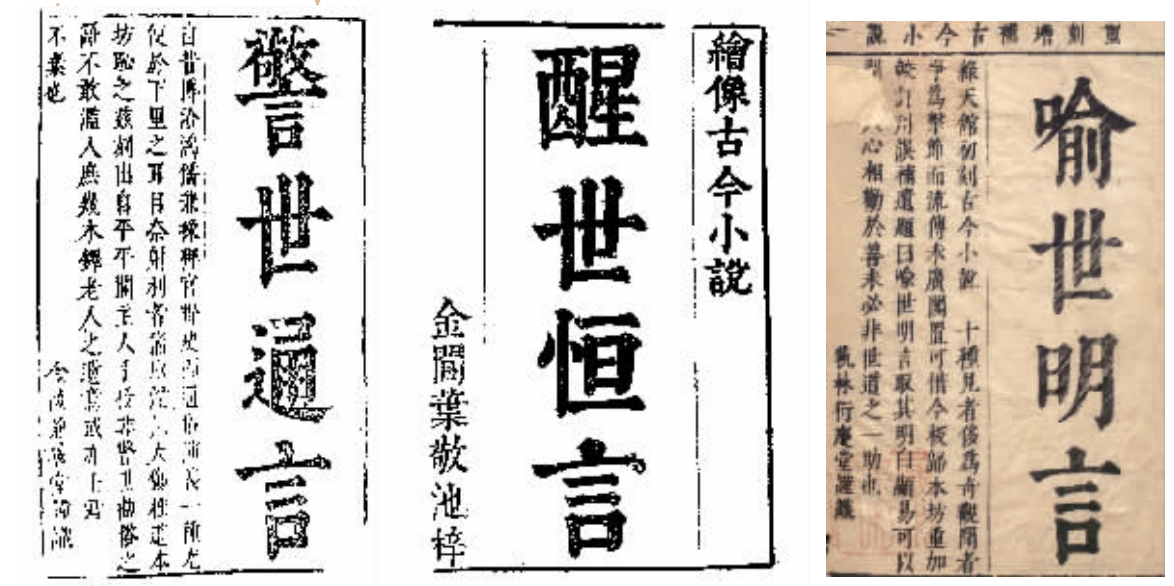 警世通言
自昔博洽鴻儒兼採稗官野史而通俗演義一種尤
便於下里之耳目奈射利者 取淫詞大傷雅道本
坊恥之茲刻出自平平閣主人手授非警世勸俗之
語不敢濫入庶幾木鐸老人之遺意或亦士君
不棄也
金陵兼善堂謹識
繪像古今小說
醒世恒言
金閶葉敬池梓
重刻增補古今小說一
喻世明言
綠天館初刻古今小說 十種見者侈為奇觀聞者
爭為擊節而流傳未廣閣置可惜今板歸本坊重加
校訂刊誤補遺題曰喻世明言取其明白顯易可以
人心相勸於善未必非世道之一助也
藝林衍慶堂謹識